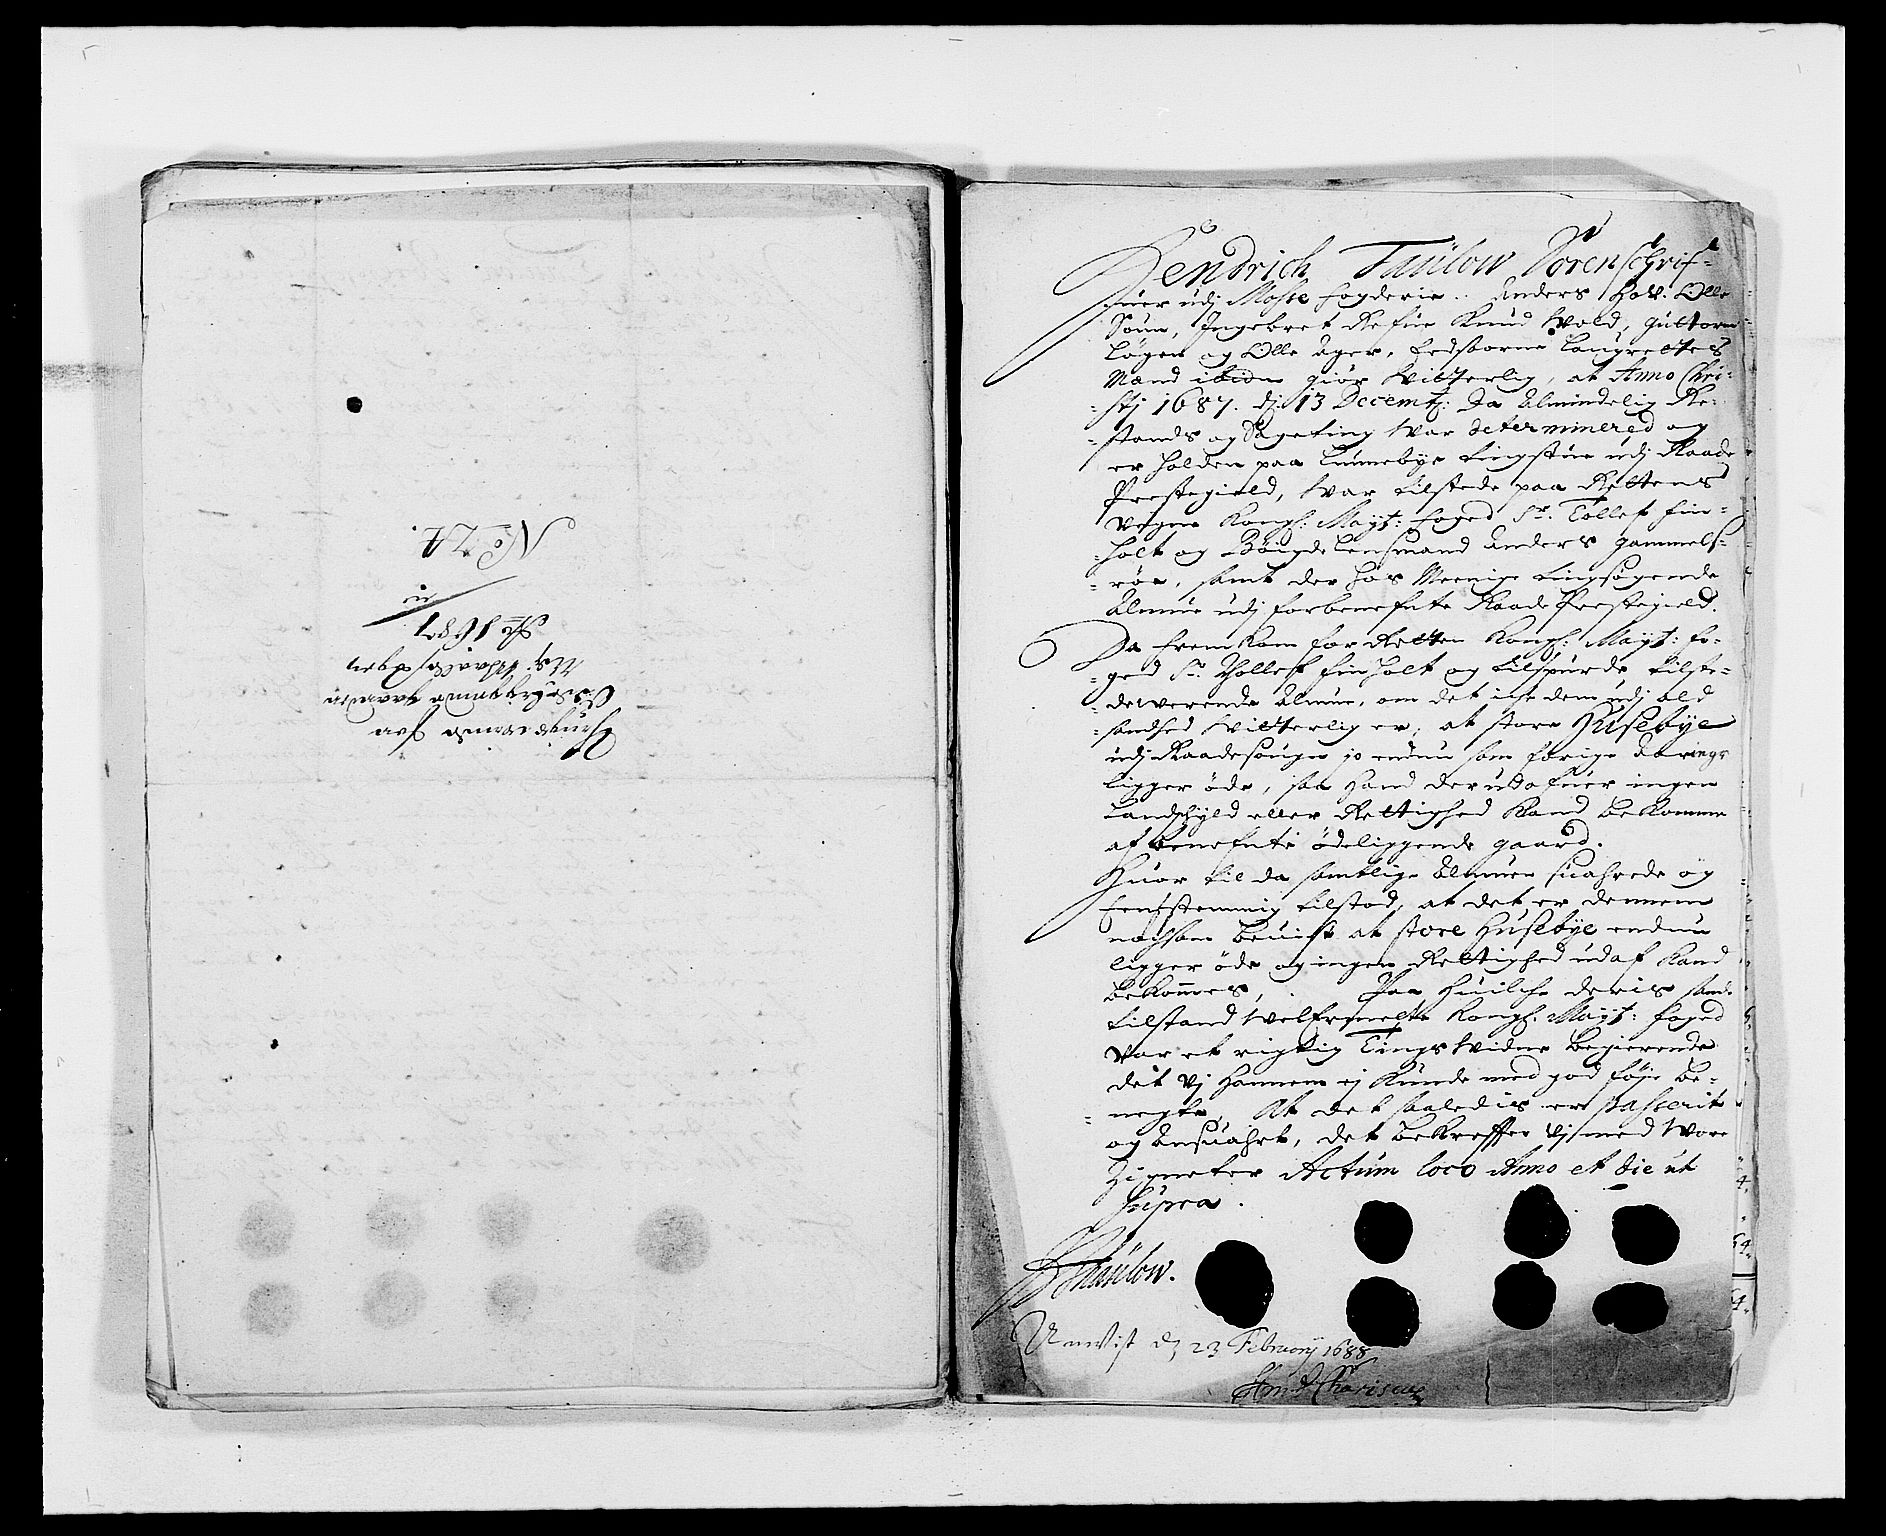 No 24.
Ao 1687
Hendrich Taülow Sorenschrif-
uer udj Mosse fogderie .. Anders Hol. Olle
Søun, Ingebret Refue Knud Wold, guttorm
Løgen og Olle Ager, Eedsvorne Laugrettes
Mænd ibidm giør Witterlig, at Anno Chri-
-stj 1687. dj 13 Decemb: Da Almindelig Re-
-stands og Sageting War determinered og
er holden paa Lunnebye tingstue udj Raade
Prestegield, War tilstede paa Rettens
vegne Kongl: Mayt: foged Sr. Tollef fin-
-holt og Bøigde Lensmand Anders gammels-
-røe, samt der hos Meenige tingsøgende
Almue udj forbenefnte Raade Prestegield.
Da fremkom for Retten Kongl: Mayt: fo-
-ged Sr. Thollef finholt og tilspurde tilste-
-dewerende Almue, om det icke dem udj ald
sandhed Witterlig er, at store Huusebye
udj Raadesougn jo endnu som forige Aaringe
ligger øde, saa Hand derudafuer ingen
Landschyld eller Rettighed Kand bekomme
af benefnte ødeliggende gaard.
Huor til da samtlige Almuen suahrede og
Eenstemmig tilstod, at det er dennem
nochsom beuist at store Husebye endnu
ligger øde og ingen Rettighed udaf Kand
bekommes, . Paa Huilche deris sande
tilstand Welbemelte Kongl. Mayt: foged
var et rigtig Tings Widne begierende
det Vj Hannem ej Kunde med god føje be-
-negte, At det saaledis er passerit
og Ansuahrt, det bekreffter Vj med Wore
Zigneter Actum loco Anno et die ut
supra.
HTaulow.
Unwist dj 23 February 1688